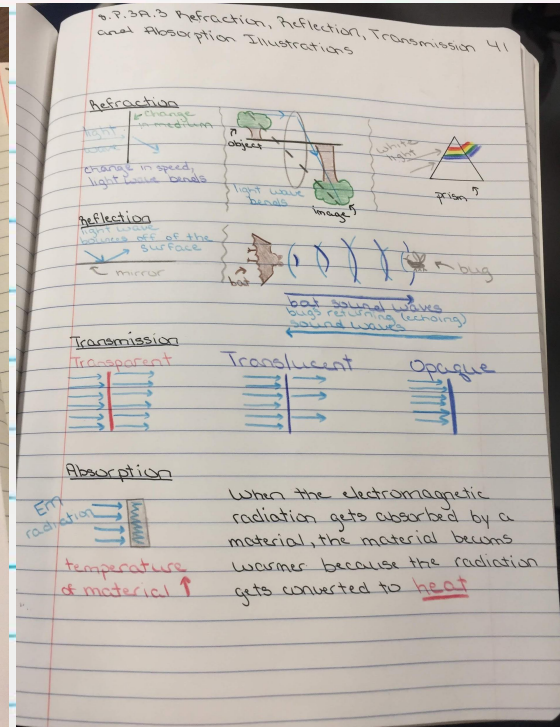 8.P.3A.3 Refraction, Reflection, Transmission 41
and Absorption Illustrations
Refraction
change
in medium
light
wave
change in speed,
light wave bends
object
light wave
bends
image
white
light
prism
Reflection
light wave
bounces off of the
surface
mirror
bat
bug
bat sound waves
bugs returning (echoing)
sound waves
Transmission
Transparent
Translucent
Opaque
Absorption
Em
radiation
temperature
of material ↑
When the electromagnetic
radiation gets absorbed by a
material, the material becoms
warmer because the radiation
gets converted to heat